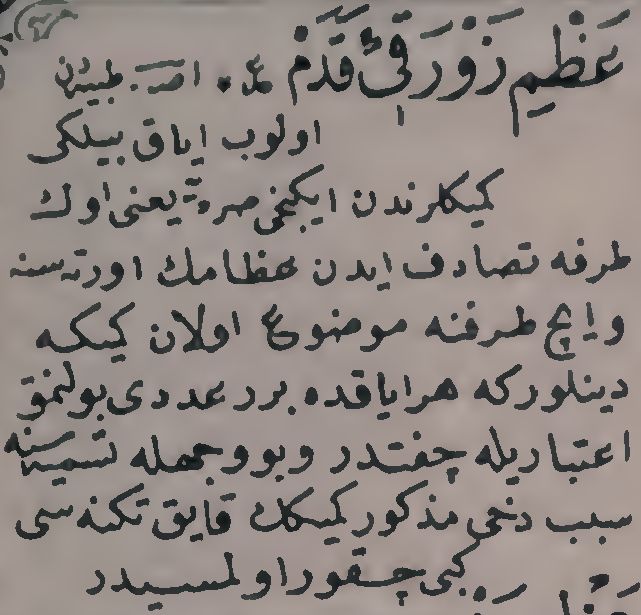 عَظْیمِ زَوْرَقِیِّ قَدَمْ ع. اصـ. طبیبدن
اولوب ایاق بیلکی
کمیکلرندن ایکنجی صره یعنی اوك
طرفه تصادف ایدن عظامك اورته سنه
وایچ طرفنه موضوع اولان کمیکه
دینلورکه هر ایاقده برر عددی بولنمق
اعتباریله چفتدر وبو وجهله تسمیه سنه
سبب دخی مذکور کمیکك قایق تکنه سی
کبی چقور اولمسیدر